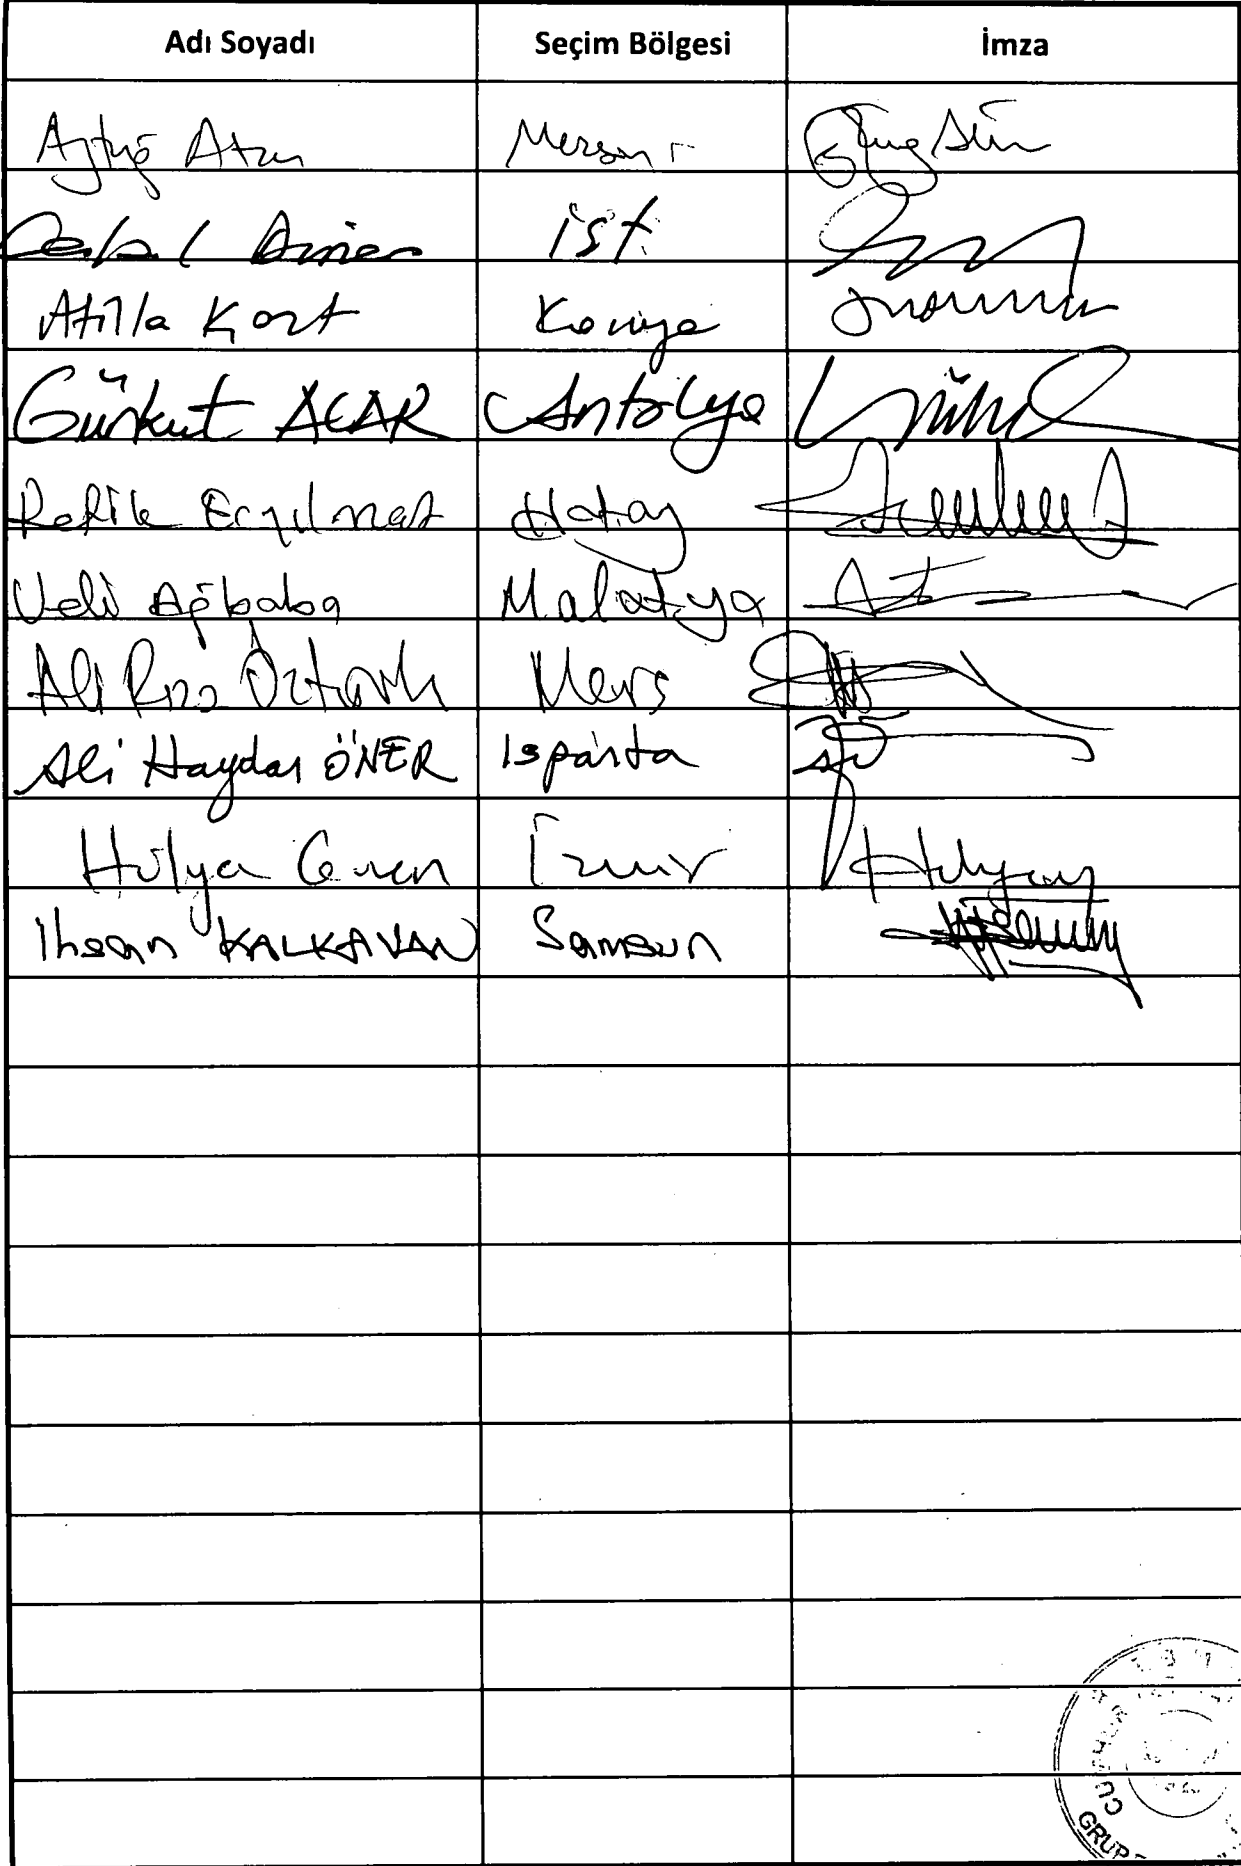 Adı Soyadı Seçim Bölgesi İmza
Aytuğ Atıcı Mersin
Celal Dinçer İst.
Atilla Kart Konya
Gürkut ACAR Antalya
Refik Eryılmaz Hatay
Veli Ağbaba Malatya
Ali Rıza Öztürk Mers
Ali Haydar ÖNER Isparta
Hülya Güven İzmir
İhsan KALKAVAN Samsun
GRUP